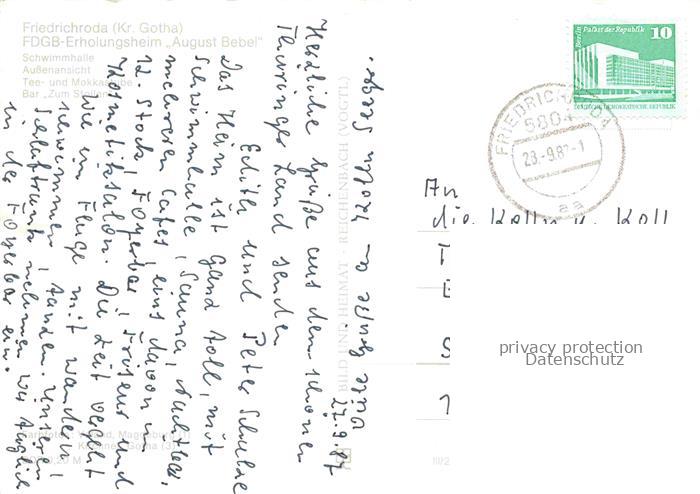 Friedrichroda (Kr. Gotha)
FDGB-Erholungsheim „August Bebel"
Schwimmhalle
Außenansicht
Tee- und Mokkastube
Bar „Zum Stollen"
Herzliche Grüße aus dem schönen
Thüringer Land senden
Edith und Peter Schulze
Das Heim ist ganz toll, mit
Schwimmhalle, Sauna, Nachtbar,
mehreren Cafes, eins davon im
12. Stock, Foyerbar, Fröseur und
Kosmetiksalon. Die Zeit vergeht
wie im Fluge mit wandern,
schwimmen, tanzen. Unseren
nehmen wir täglich
in der Foyerbar ein.
22.9.87
BILD UND HEIMAT · REICHENBACH (VOGTL)
Berlin Palast der Republik
10
DEUTSCHE DEMOKRATISCHE REPUBLIK
FRIEDRICHRODA
5804
23.-9.87-1
aa
An
die
privacy protection
Datenschutz